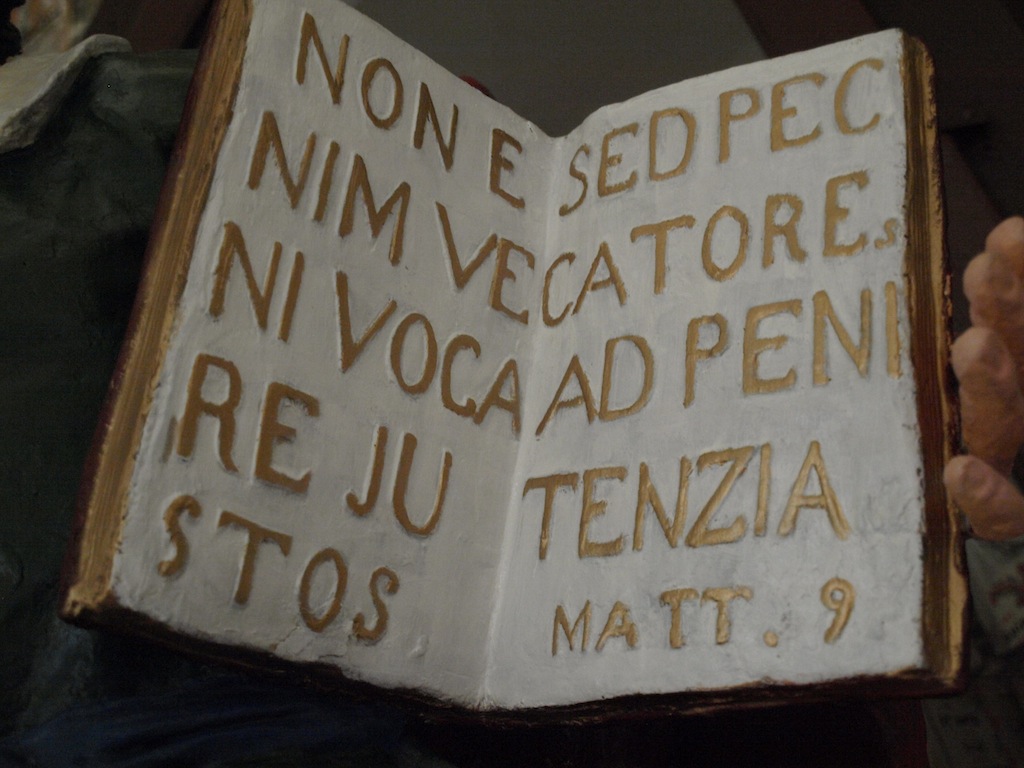 NON E
NIM VE
NI VOCA
RE JU
STOS
SED PEC
CATORES
AD PENI
TENZIA
MATT. 9